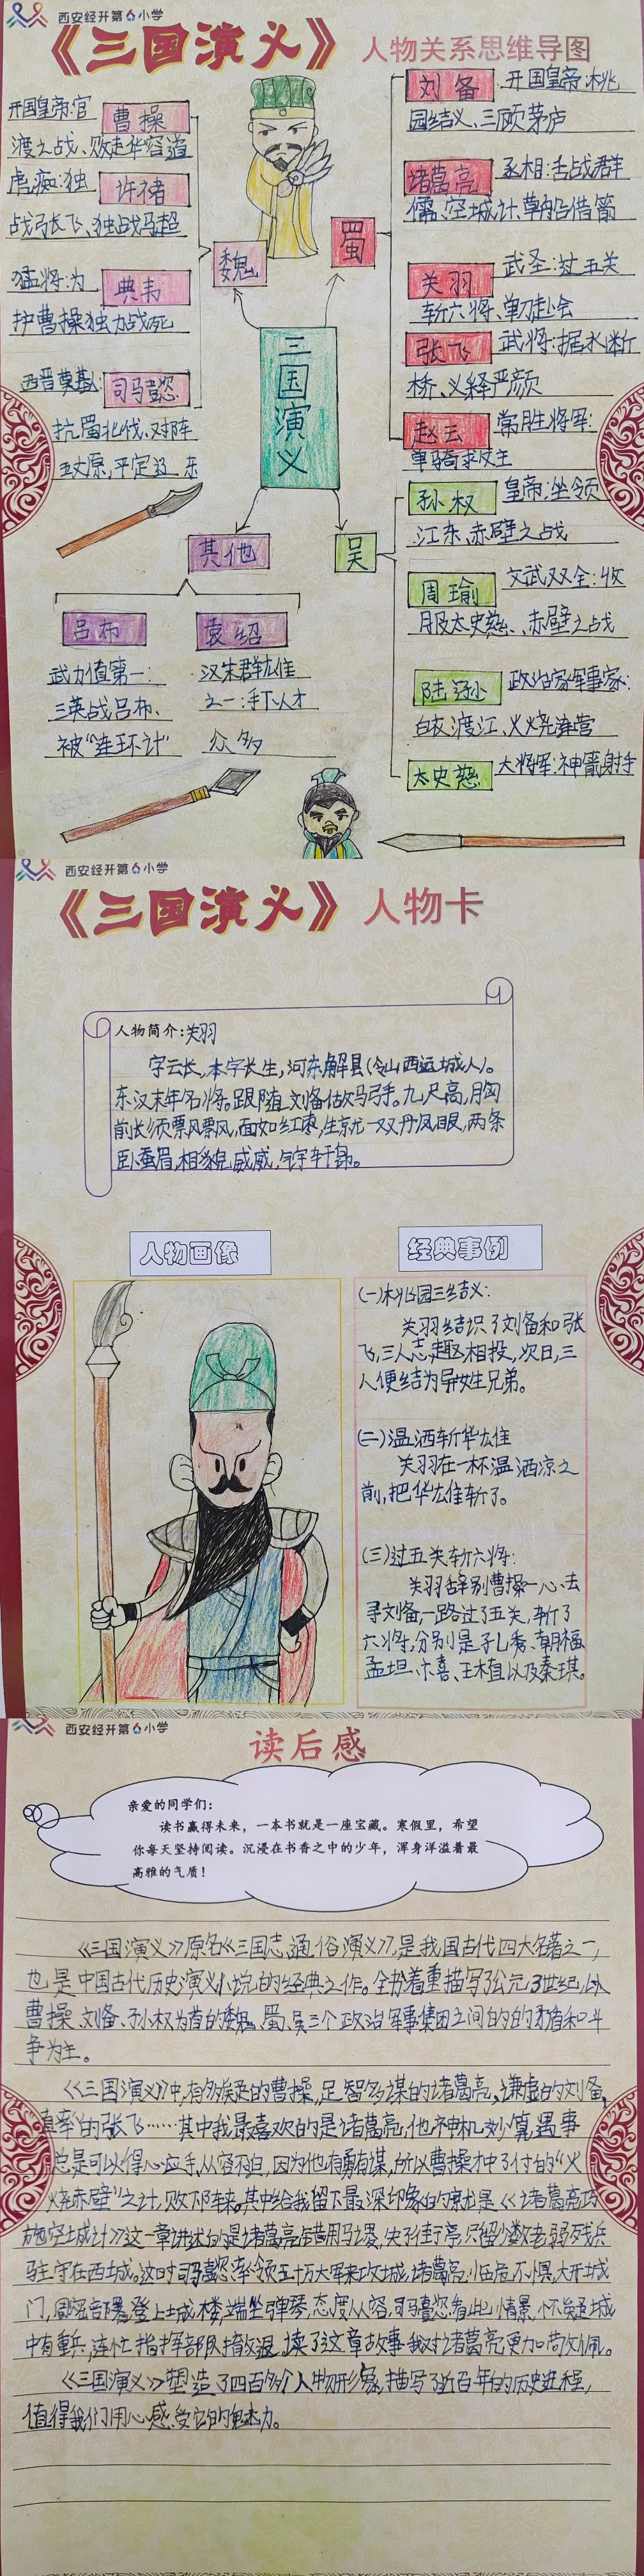 西安经开第6小学
《三国演义》人物关系思维导图
开国皇帝:官
曹操
渡之战、败走华容道
虎痴:独
许褚
战张飞、独战马超
猛将:为
典韦
护曹操独力战死
西晋奠基人:
司马懿
抗蜀北伐、对阵
五丈原,平定辽东
魏
蜀
三国演义
其他
吴
刘备
开国皇帝:桃
园结义、三顾茅庐
诸葛亮
丞相:舌战群
儒、空城计、草船借箭
关羽
武圣:过五关
斩六将、单刀赴会
张飞
武将:据水断
桥、义释严颜
赵云
常胜将军:
单骑救主
孙权
皇帝:坐领
江东、赤壁之战
周瑜
文武双全:收
服太史慈、赤壁之战
陆逊
政治家军事家:
白衣渡江、火烧连营
太史慈
大将军:神箭射手
吕布
武力值第一:
三英战吕布、
被“连环计”
袁绍
汉末群雄
之一:手下人才
众多
西安经开第6小学
《三国演义》人物卡
人物简介:关羽
字云长,本字长生,河东解县(今山西运城人)。
东汉末年名将,跟随刘备做马弓手。九尺高,胸
前长须飘飘,面如红枣,生就一双丹凤眼,两条
卧蚕眉,相貌威威,气宇轩昂。
人物画像
经典事例
(一)桃园三结义:
关羽结识了刘备和张
飞,三人志趣相投,次日,三
人便结为异姓兄弟。
(二)温酒斩华雄
关羽在一杯温酒凉之
前,把华雄斩了。
(三)过五关斩六将:
关羽辞别曹操一心去
寻刘备,一路过了五关,斩了
六将,分别是孔秀、韩福、
孟坦、卞喜、王植以及秦琪。
西安经开第6小学
读后感
亲爱的同学们:
读书赢得未来,一本书就是一座宝藏。寒假里,希望
你每天坚持阅读。沉浸在书香之中的少年,浑身洋溢着最
高雅的气质!
《三国演义》原名《三国志通俗演义》,是我国古代四大名著之一,
也是中国古代历史演义小说的经典之作。全书着重描写了公元3世纪,以
曹操、刘备、孙权为首的魏、蜀、吴三个政治军事集团之间的的矛盾和斗
争为主。
《三国演义》中,有多疑的曹操,足智多谋的诸葛亮,谦虚的刘备,
直率的张飞……其中我最喜欢的是诸葛亮,他神机妙算,遇事
总是可以得心应手,从容不迫,因为他有勇有谋,所以曹操才中了他的“火
烧赤壁”之计,败下阵来。其中给我留下最深印象的就是《诸葛亮巧
施空城计》这一章讲述的是诸葛亮错用马谡,失了街亭,只留少数老弱残兵
驻守在西城。这时司马懿率领五十万大军来攻城,诸葛亮临危不惧,大开城
门,登上城楼,端坐弹琴,态度从容,司马懿看此情景,怀疑城
中有重兵,连忙指挥部队撤退,读了这章故事我对诸葛亮更加的佩。
《三国演义》塑造了四百多个人物形象,描写了近百年的历史进程,
值得我们用心感受它的魅力。